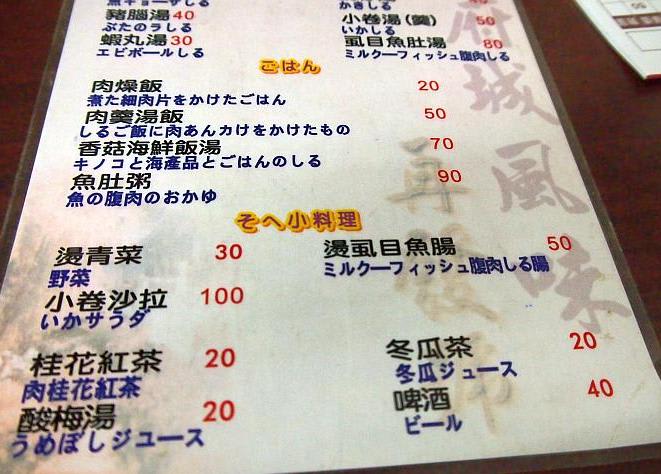 豬腦湯 40
ぶたのうしる
蝦丸湯 30
エビボールしる
小卷湯(羹) 50
いかしる
虱目魚肚湯 80
ミルクーフィッシュ腹肉しる
ごはん
肉燥飯 20
煮た細肉片をかけたごはん
肉羹湯飯 50
しるご飯に肉あんカけをかけたもの
香菇海鮮飯湯 70
キノコと海產品とごはんのしる
魚肚粥 90
魚の腹肉のおかゆ
そへ小料理
燙青菜 30
野菜
小卷沙拉 100
いかサラダ
燙虱目魚腸 50
ミルクーフィッシュ腹肉しる腸
桂花紅茶 20
肉桂花紅茶
酸梅湯 20
うめぼしジユース
冬瓜茶 20
冬瓜ジュース
啤酒 40
ビール
府城風味
再發